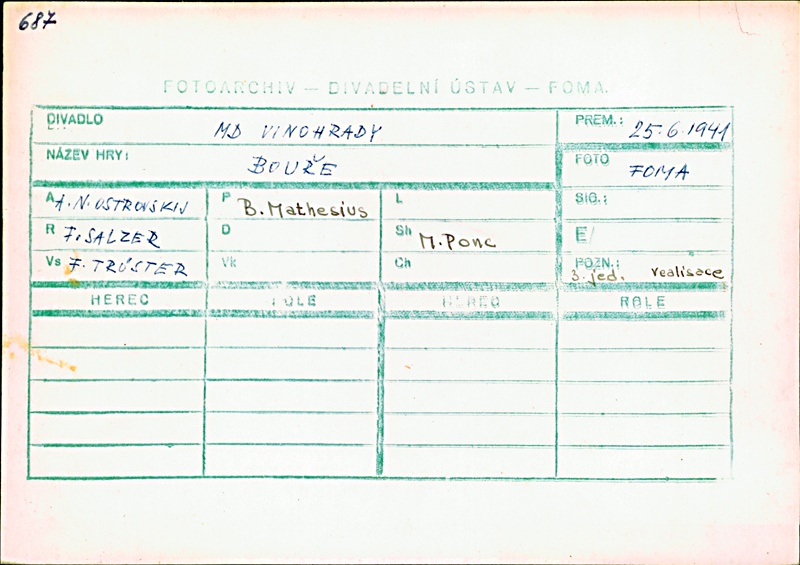 687
FOTOARCHIV — DIVADELNÍ ÚSTAV — FOMA
DIVADLO MD VINOHRADY PREM.: 25.6.1941
NÁZEV HRY: BOUŘE FOTO FOMA
A A.N. OSTROVSKIJ P B. Mathesius L SIG.:
R F. SALZER D Sh M. Ponc E/
Vs F. TRÖSTER Vk Ch POZN.: 3. jed. realisace
HEREC ROLE HEREC ROLE